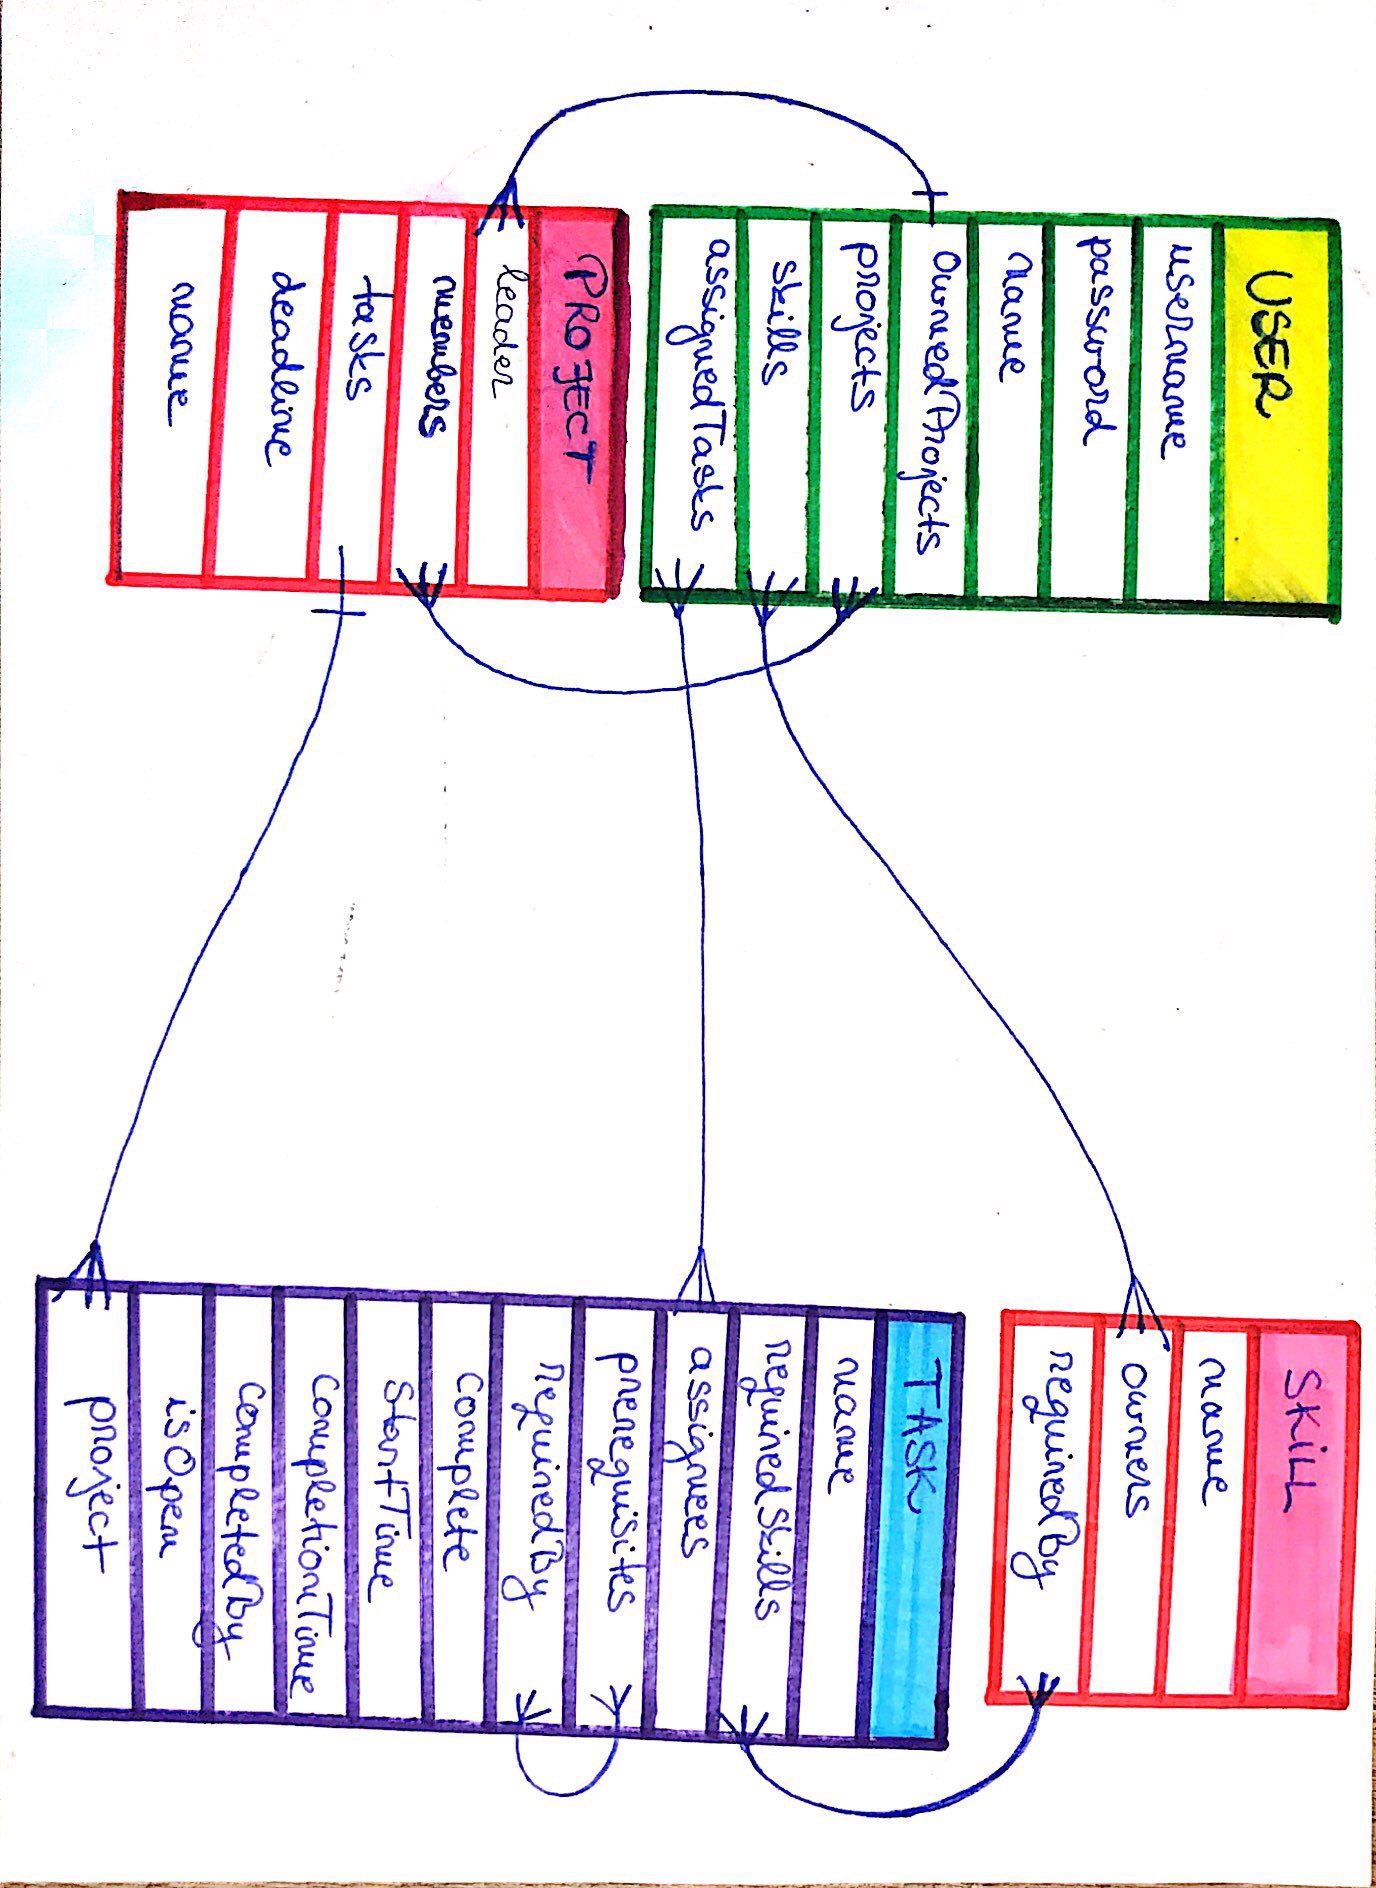 USER
username
password
name
OwnedProjects
projects
skills
assignedTasks
PROJECT
leader
members
tasks
deadline
name
SKiLL
name
owners
requiredBy
TASK
name
requiredSkills
assignees
prerequisites
requiredBy
Complete
StartTime
CompletionTime
CompletedBy
isOpen
project